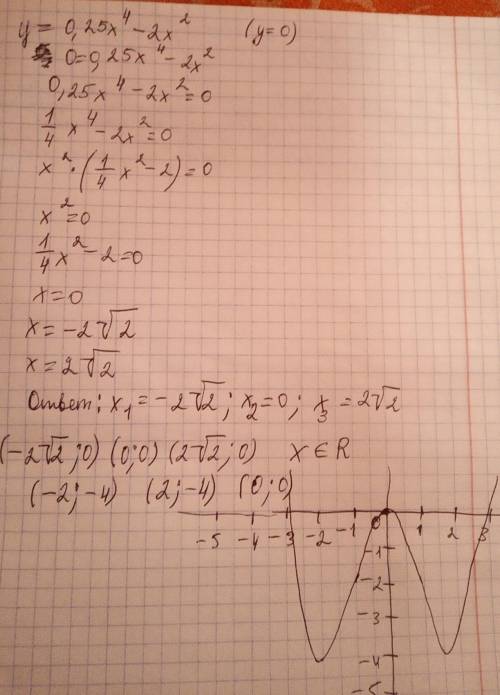 y = 0,25x⁴ - 2x² (y=0)
0=0,25x⁴ - 2x²
0,25x⁴ - 2x² = 0
1/4 x⁴ - 2x² = 0
x² · (1/4 x² - 2) = 0
x² = 0
1/4 x² - 2 = 0
x = 0
x = -2√2
x = 2√2
Ответ: x₁ = -2√2; x₂ = 0; x₃ = 2√2
(-2√2; 0) (0; 0) (2√2; 0) X ∈ R
(-2; -4) (2; -4) (0; 0)
-5 -4 -3 -2 -1 0 1 2 3
-1
-2
-3
-4
-5